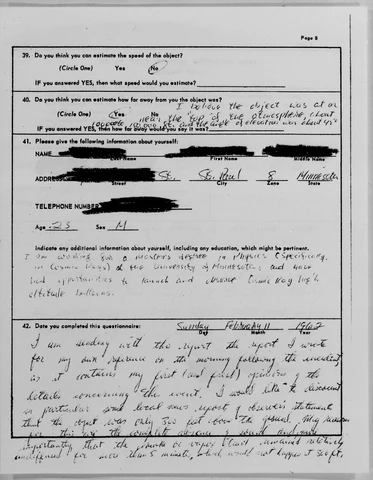 Page 8
39. Do you think you can estimate the speed of the object?
(Circle One) Yes No
IF you answered YES, then what speed would you estimate?
40. Do you think you can estimate how far away from you the object was?
(Circle One) Yes No I believe the object was at or
near the top of the atmosphere, about
IF you answered YES, then how far away would you say it was? 100,000 feet and the angle of elevation was about 45°
41. Please give the following information about yourself:
NAME
Last Name First Name Middle Name
ADDRESS St. St. Paul 8 Minnesota
Street City Zone State
TELEPHONE NUMBER
Age 23 Sex M
Indicate any additional information about yourself, including any education, which might be pertinent.
I am working for a masters degree in Physics (specifically,
in Cosmic Rays) at the University of Minnesota, and have
had opportunities to launch and observe Cosmic Ray high
altitude balloons.
42. Date you completed this questionnaire: Sunday February 11 1962
Day Month Year
I am sending with this report the report I wrote
for my own reference on the morning following the incident,
as it contains my first (and best) opinions of the
details concerning the event. I would like to discount
in particular some local news report of observer's statement
that the object was only 500 feet above the ground. My reasons
for this are the complete absence of sound and more
importantly that the smoke or vapor cloud remained relatively
undiffused for more than 5 minutes, which would not happen at 500 ft.